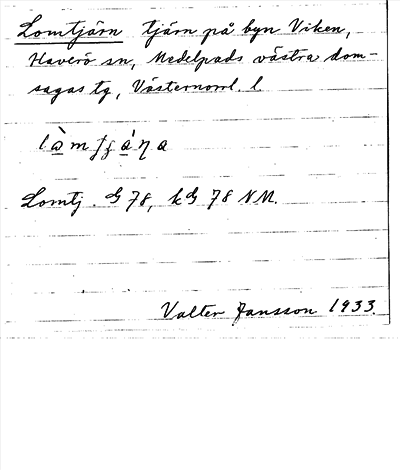 Lomtjärn tjärn på byn Viken,
Haverö sn, Medelpads västra dom-
sagas tg, Västernorrl. l.
Lomtj. G 78, kG 78 NM.
Valter Jansson 1933.